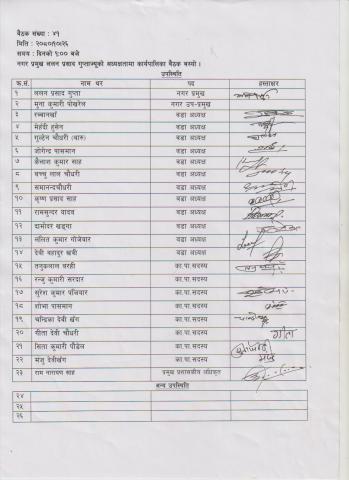 बैठक संख्या : ४१
मिति : २०८०।१०।२६
समय : दिनको १:०० बजे
नगर प्रमुख ललन प्रसाद गुप्ताज्यूको अध्यक्षतामा कार्यपालिका बैठक बस्यो ।
उपस्थिति
क्र.सं. नाम थर पद हस्ताक्षर
१ ललन प्रसाद गुप्ता नगर प्रमुख
२ मुना कुमारी पोखरेल नगर उप-प्रमुख
३ रब्बानखाँ वडा अध्यक्ष
४ मेहंदी हुसेन वडा अध्यक्ष
५ गुल्टेन चौधरी (थारु) वडा अध्यक्ष
६ जोगेन्द्र पासमान वडा अध्यक्ष
७ कैलाश कुमार साह वडा अध्यक्ष
८ बच्चु लाल चौधरी वडा अध्यक्ष
९ समानन्दचौधरी वडा अध्यक्ष
१० कृष्ण प्रसाद साह वडा अध्यक्ष
११ रामसुन्दर यादव वडा अध्यक्ष
१२ दामोदर खड्गा वडा अध्यक्ष
१३ ललित कुमार गोजेवार वडा अध्यक्ष
१४ देवी बहादुर खत्री वडा अध्यक्ष
१५ तनुकलाल सरही का.पा.सदस्य
१६ रन्जु कुमारी सरदार का.पा.सदस्य
१७ सुरेश कुमार पंजियार का.पा.सदस्य
१८ शोभा पासमान का.पा.सदस्य
१९ चन्द्रिका देवी खंग का.पा.सदस्य
२० गीता देवी चौधरी का.पा.सदस्य गीता
२१ सिता कुमारी पौडेल का.पा.सदस्य
२२ मंजु देवीखंग का.पा.सदस्य मंजु
२३ राम नारायण साह प्रमुख प्रशासकीय अधिकृत
अन्य उपस्थिति
२४
२५
२६